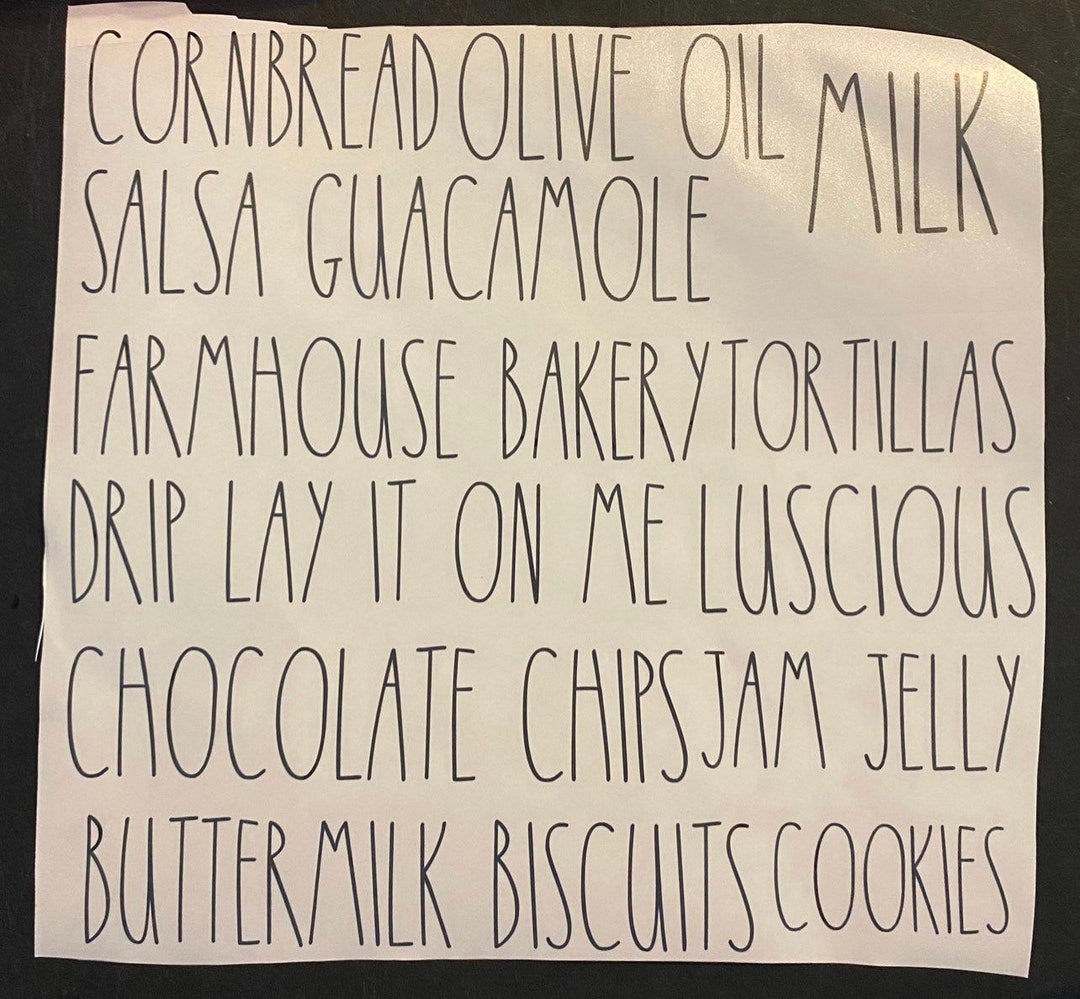 CORNBREAD OLIVE OIL MILK
SALSA GUACAMOLE
FARMHOUSE BAKERY TORTILLAS
DRIP LAY IT ON ME LUSCIOUS
CHOCOLATE CHIPS JAM JELLY
BUTTERMILK BISCUITS COOKIES